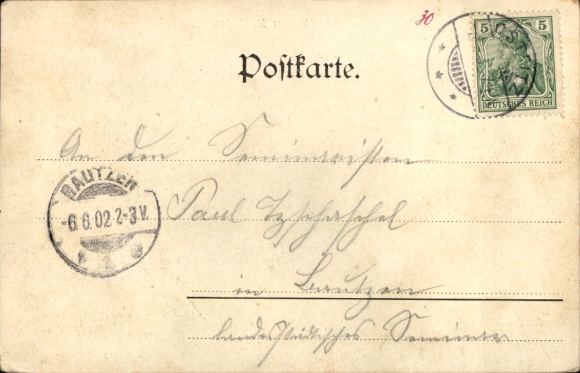 30
5 5
DEUTSCHES REICH
Postkarte.
An den Seminaristen
BAUTZEN
-6.6.02 2-3 V.
Paul Tzschaschel
in Bautzen
landständisches Seminar